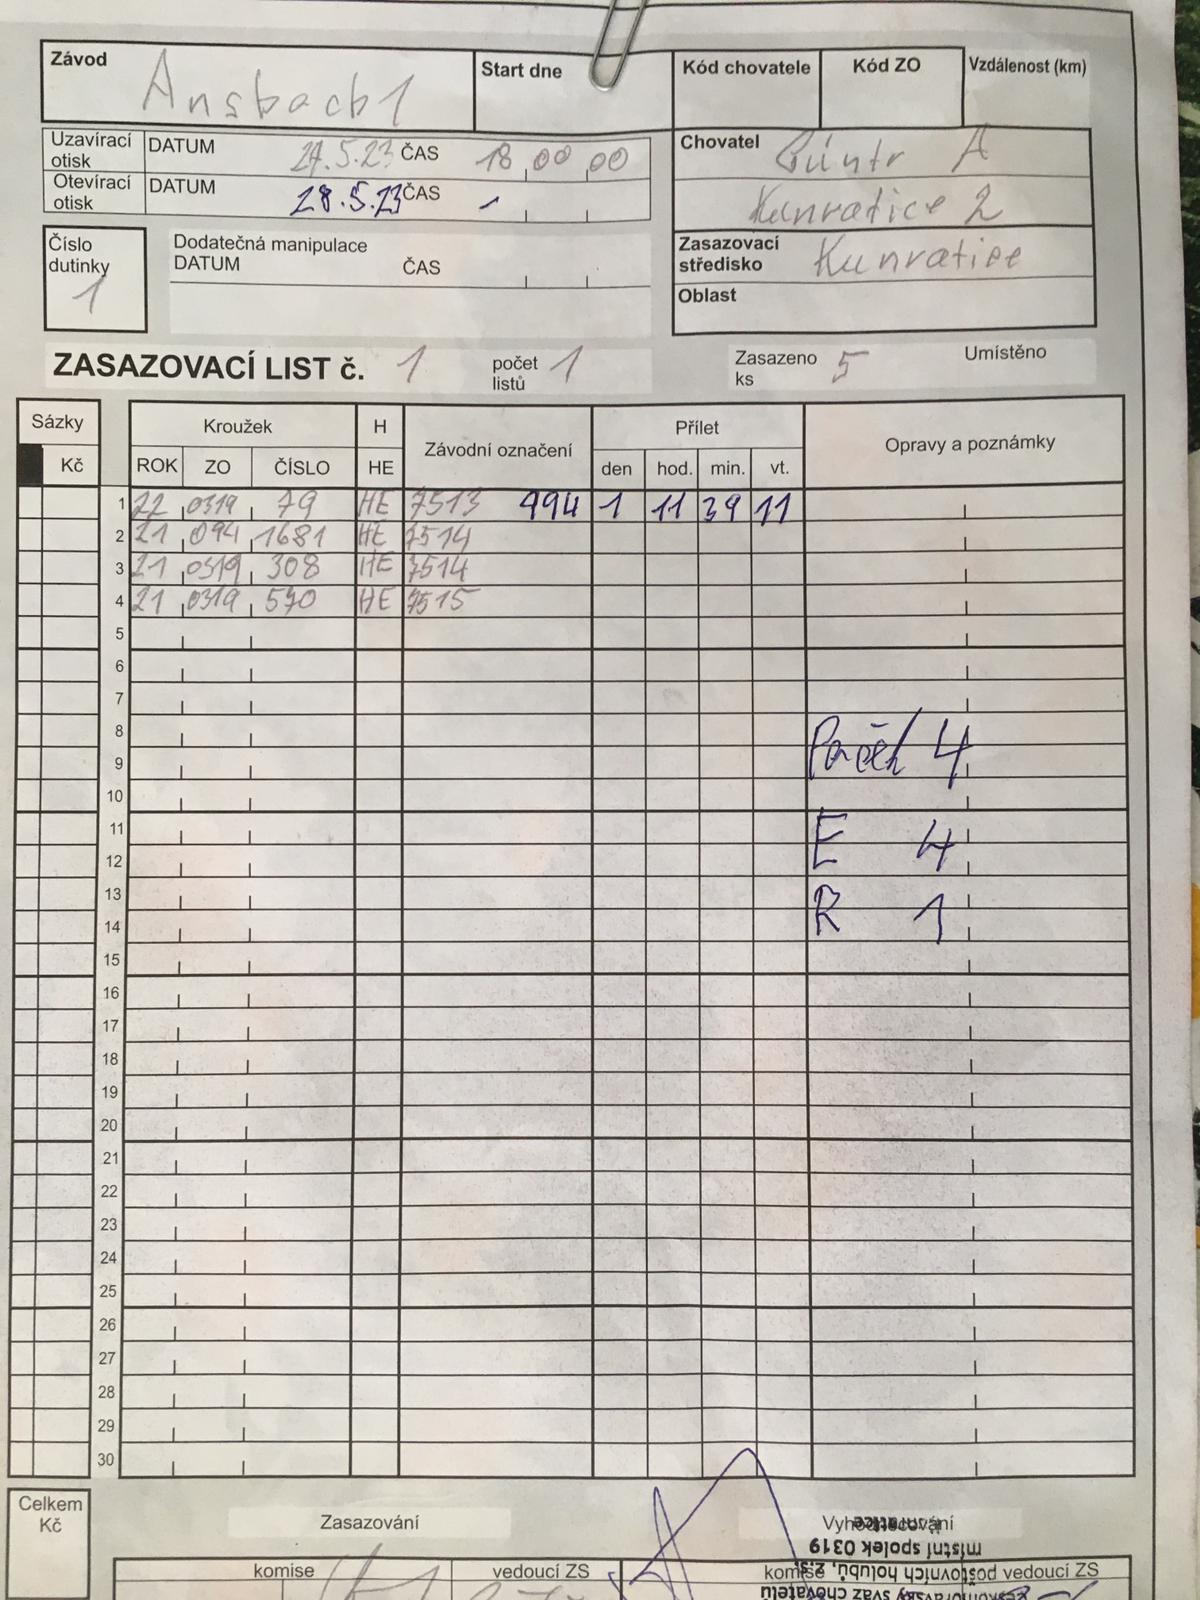 Závod Ansbach 1 Start dne Kód chovatele Kód ZO Vzdálenost (km)
Uzavírací otisk DATUM 27.5.23 ČAS 18 00 00
Otevírací otisk DATUM 28.5.23 ČAS -
Chovatel Güntr A
Kunratice 2
Zasazovací středisko Kunratice
Oblast
Číslo dutinky 1
Dodatečná manipulace
DATUM ČAS
ZASAZOVACÍ LIST č. 1 počet listů 1 Zasazeno ks 5 Umístěno
Sázky Kroužek H Závodní označení Přílet Opravy a poznámky
Kč ROK ZO ČÍSLO HE den hod. min. vt.
1 22 0319 79 HE 7513 994 1 11 39 11
2 21 094 1681 HE 7514
3 21 0319 308 HE 7514
4 21 0319 570 HE 7515
5
6
7
8
9
4
10
11
12
E 4
13
14
R 1
15
16
17
18
19
20
21
22
23
24
25
26
27
28
29
30
Celkem Kč
Zasazování Vyhodnocování
místní spolek 0319
komise vedoucí ZS komise vedoucí ZS
poštovních holubů, z.s.
svaz chovatelů